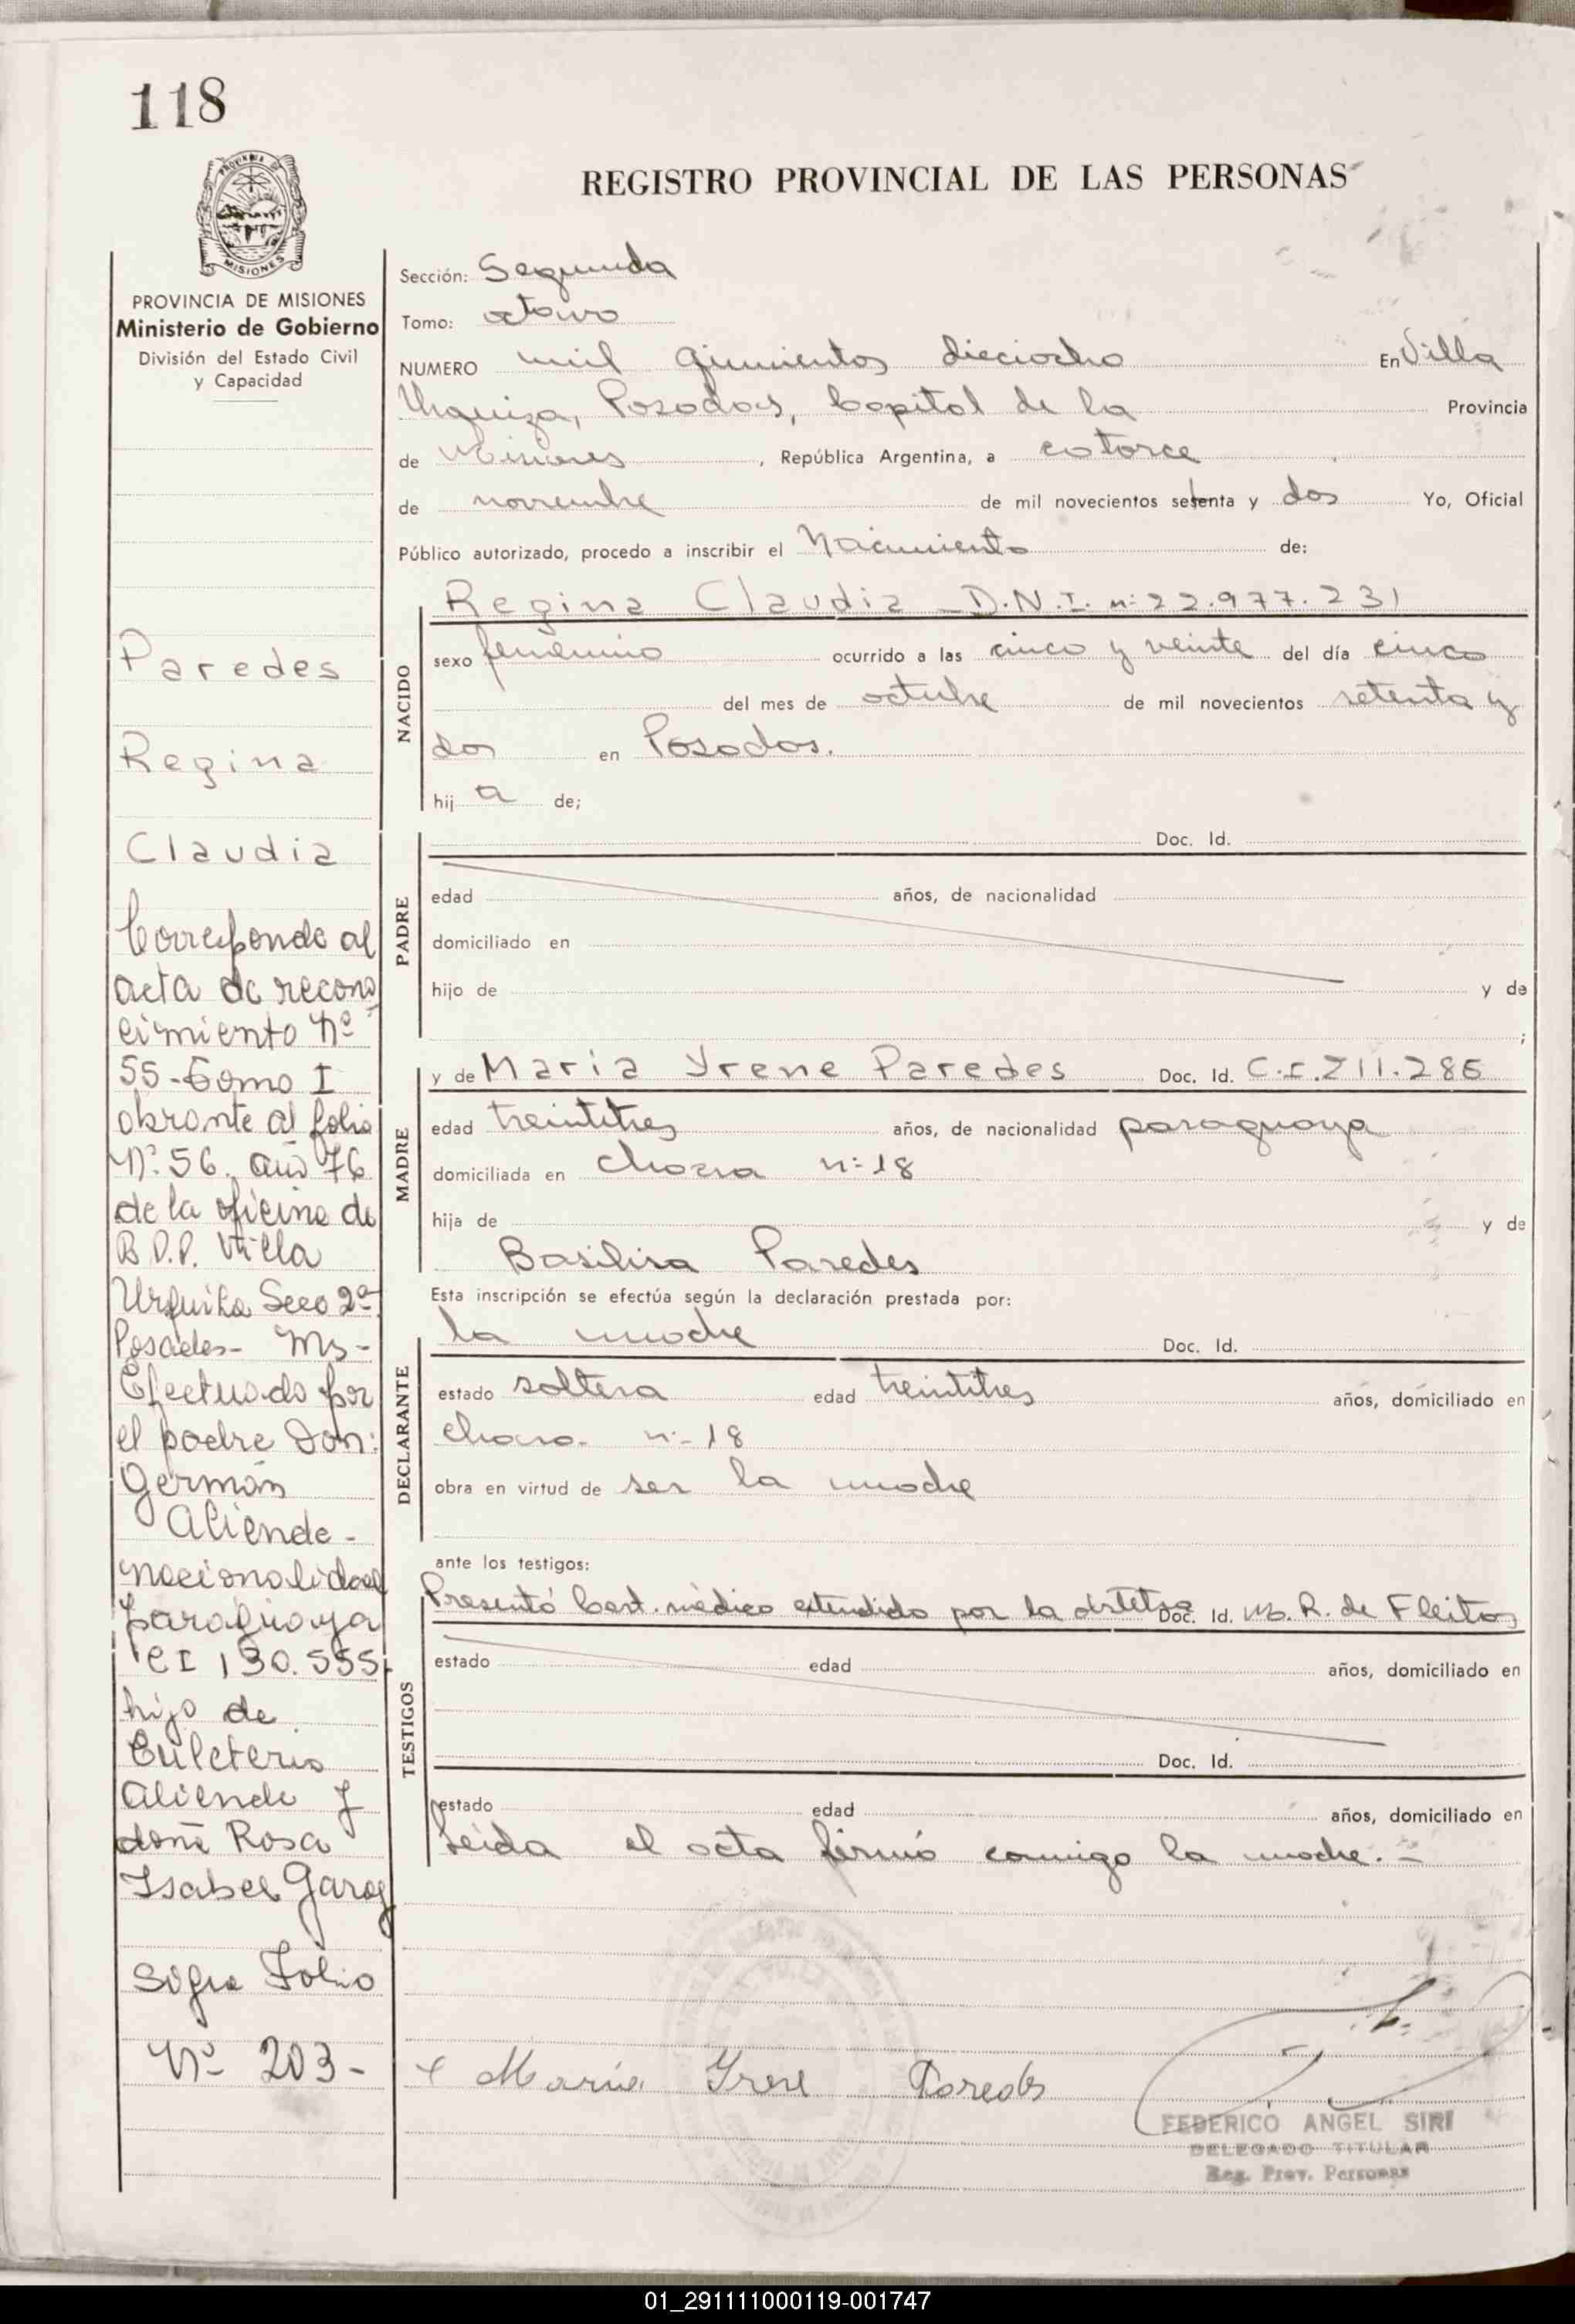 118
REGISTRO PROVINCIAL DE LAS PERSONAS
PROVINCIA DE
MISIONES
PROVINCIA DE MISIONES
Ministerio de Gobierno
División del Estado Civil
y Capacidad
Paredes
Regina
Claudia
Corresponde al
acta de recono
cimiento Nº
55-Tomo I
obrante al folio
Nº 56. año 76
de la oficina de
R.P.P. Villa
Urquiza Secc 2ª
Posadas- Ms-
Efectuado por
el padre Don:
Germán
Aliende-
nacionalidad
paraguaya
CI 130.555
hijo de
Euleterio
Aliende y
doña Rosa
Isabel Garay
Sigue Folio
Nº 203-
Sección: Segunda
Tomo: octavo
NUMERO mil quinientos dieciocho En Villa
Urquiza, Posadas, Capital de la Provincia
de Misiones, República Argentina, a catorce
de noviembre de mil novecientos setenta y dos Yo, Oficial
Público autorizado, procedo a inscribir el Nacimiento de:
NACIDO
Regina Claudia D.N.I. nº 22.977.231
sexo femenino ocurrido a las cinco y veinte del día cinco
del mes de octubre de mil novecientos setenta y
dos en Posadas.
hij a de;
PADRE
Doc. Id.
edad años, de nacionalidad
domiciliado en
hijo de y de
;
MADRE
y de Maria Yrene Paredes Doc. Id. C.I. 211.286
edad treintitres años, de nacionalidad paraguaya
domiciliada en chacra nº 18
hija de y de
Basilisa Paredes
Esta inscripción se efectúa según la declaración prestada por:
DECLARANTE
la madre Doc. Id.
estado soltera edad treintitres años, domiciliado en
chacra nº 18
obra en virtud de ser la madre
ante los testigos:
TESTIGOS
Presentó Cert. médico extendido por la obstetra Doc. Id. M. R. de Fleitas
estado edad años, domiciliado en
Doc. Id.
estado edad años, domiciliado en
Leida el acta firmó conmigo la madre.=
x Maria Yrene Paredes
FEDERICO ANGEL SIRI
DELEGADO TITULAR
Reg. Prov. Personas
01_291111000119-001747